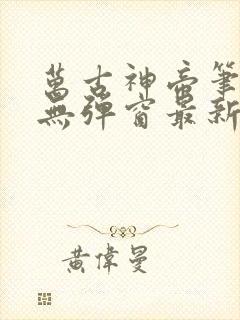 萬古神帝筆
無彈窗最新
黃偉曼